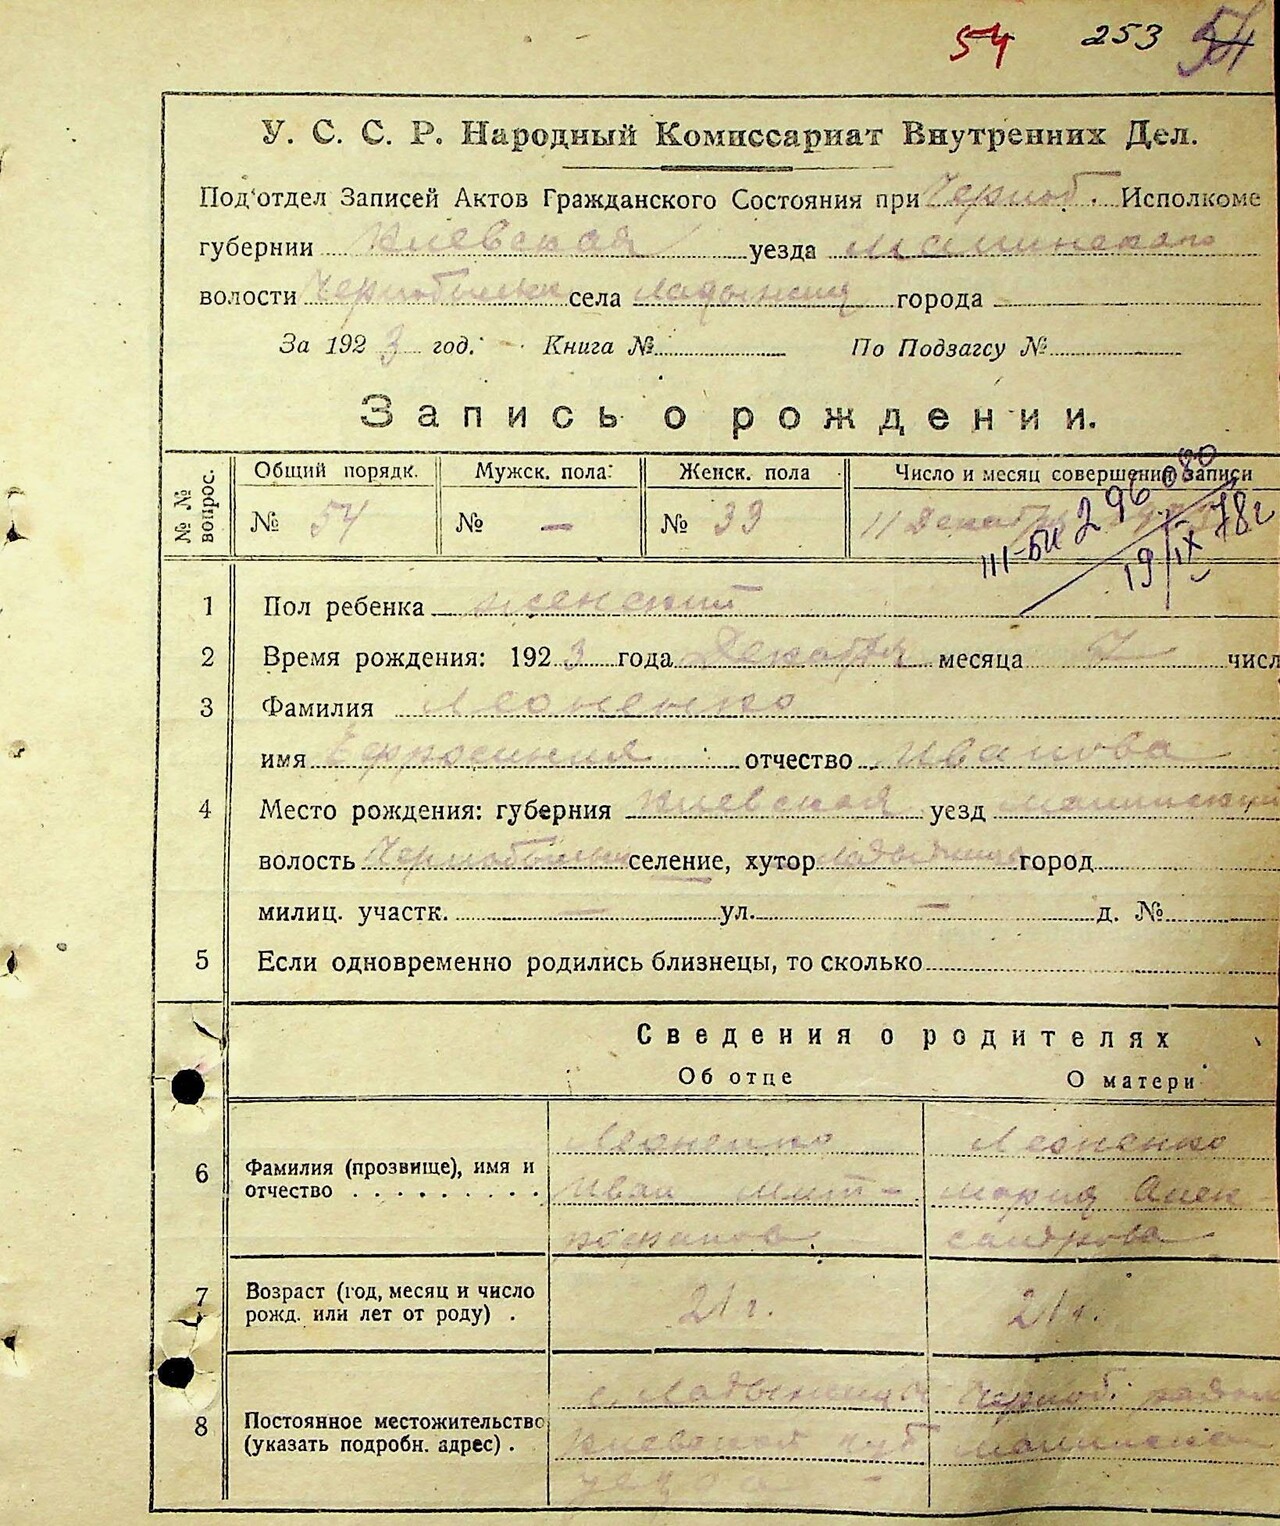 54 253 54
У. С. С. Р. Народный Комиссариат Внутренних Дел.
Под'отдел Записей Актов Гражданского Состояния при Черноб. Исполкоме
губернии Киевская уезда Малинского
волости села Ладыжичи города
За 1923 год. Книга № По Подзагсу №
Запись о рождении.
№ № вопрос. Общий порядк. Мужск. пола: Женск. пола Число и месяц совершения записи
№ 54 № — № 33 11 Декабря
III-БИ 296080
19/IX 78г
1 Пол ребенка женский
2 Время рождения: 1923 года Декабря месяца 7 числ
3 Фамилия Леоненко
имя Ефросиния отчество Иванова
4 Место рождения: губерния Киевская уезд Малинский
волость селение, хутор Ладыжичи город
милиц. участк. — ул. — д. №
5 Если одновременно родились близнецы, то сколько
Сведения о родителях
Об отце О матери
6 Фамилия (прозвище), имя и отчество . . . . . . . . . Леоненко Леоненко
Иван Мит- Мария Алек-
рофанов сандрова
7 Возраст (год, месяц и число рожд. или лет от роду) . 21 г. 21 г.
8 Постоянное местожительство (указать подробн. адрес) . с. Ладыжичи Черноб. района
Киевской губ